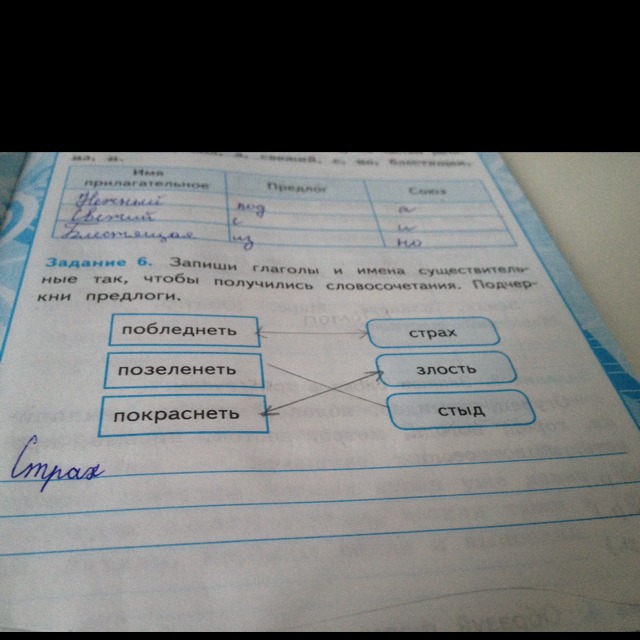 из, п. свежий, с, но, блестящая,
Имя прилагательное Предлог Союз
Нежный под а
Свежий с и
Блестящая из но
Задание 6. Запиши глаголы и имена существитель-
ные так, чтобы получились словосочетания. Подчер-
кни предлоги.
побледнеть страх
позеленеть злость
покраснеть стыд
Страх